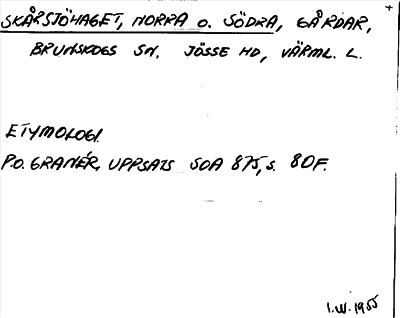 SKÅRSJÖHAGET, NORRA o. SÖDRA, GÅRDAR,
BRUNSKOGS SN. JÖSSE HD, VÄRML. L.
ETYMOLOGI.
P.O. GRANÉR, UPPSATS SOA 875, s. 80F.
I.W. 1955